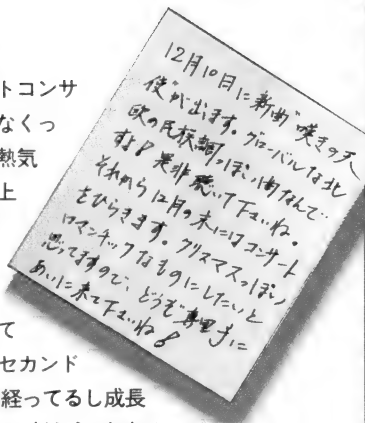 トコンサ
なくっ
熱気
上
て
セカンド
経ってるし成長
12月10日に新曲“嘆きの天
使”が出ます。グローバルな北
欧の民族調っぽい曲なんで
すよ!是非聴いて下さいね。
それから12月の末にはコンサート
をひらきます。クリスマスっぽい
ロマンチックなものにしたいと
思ってますので、どうぞ真里子に
あいに来て下さいね!